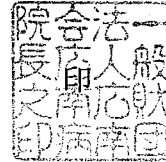 一般財団
法人広南
会広南病
院長之印
印